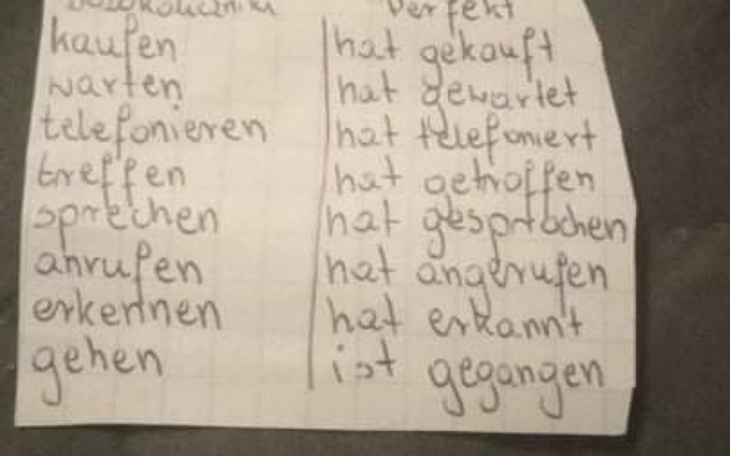 Perfekt
kaufen hat gekauft
warten hat gewartet
telefonieren hat telefoniert
treffen hat getroffen
sprechen hat gesprochen
anrufen hat angerufen
erkennen hat erkannt
gehen ist gegangen